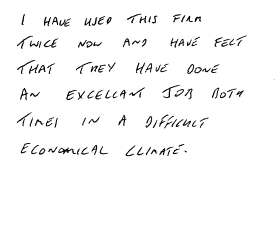 I HAVE USED THIS FIRM
TWICE NOW AND HAVE FELT
THAT THEY HAVE DONE
AN EXCELLANT JOB BOTH
TIMES IN A DIFFICULT
ECONOMICAL CLIMATE.